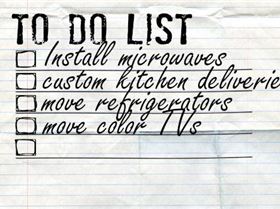 TO DO LIST
Install microwaves
custom kitchen deliverie
move refrigerators
move color TVs